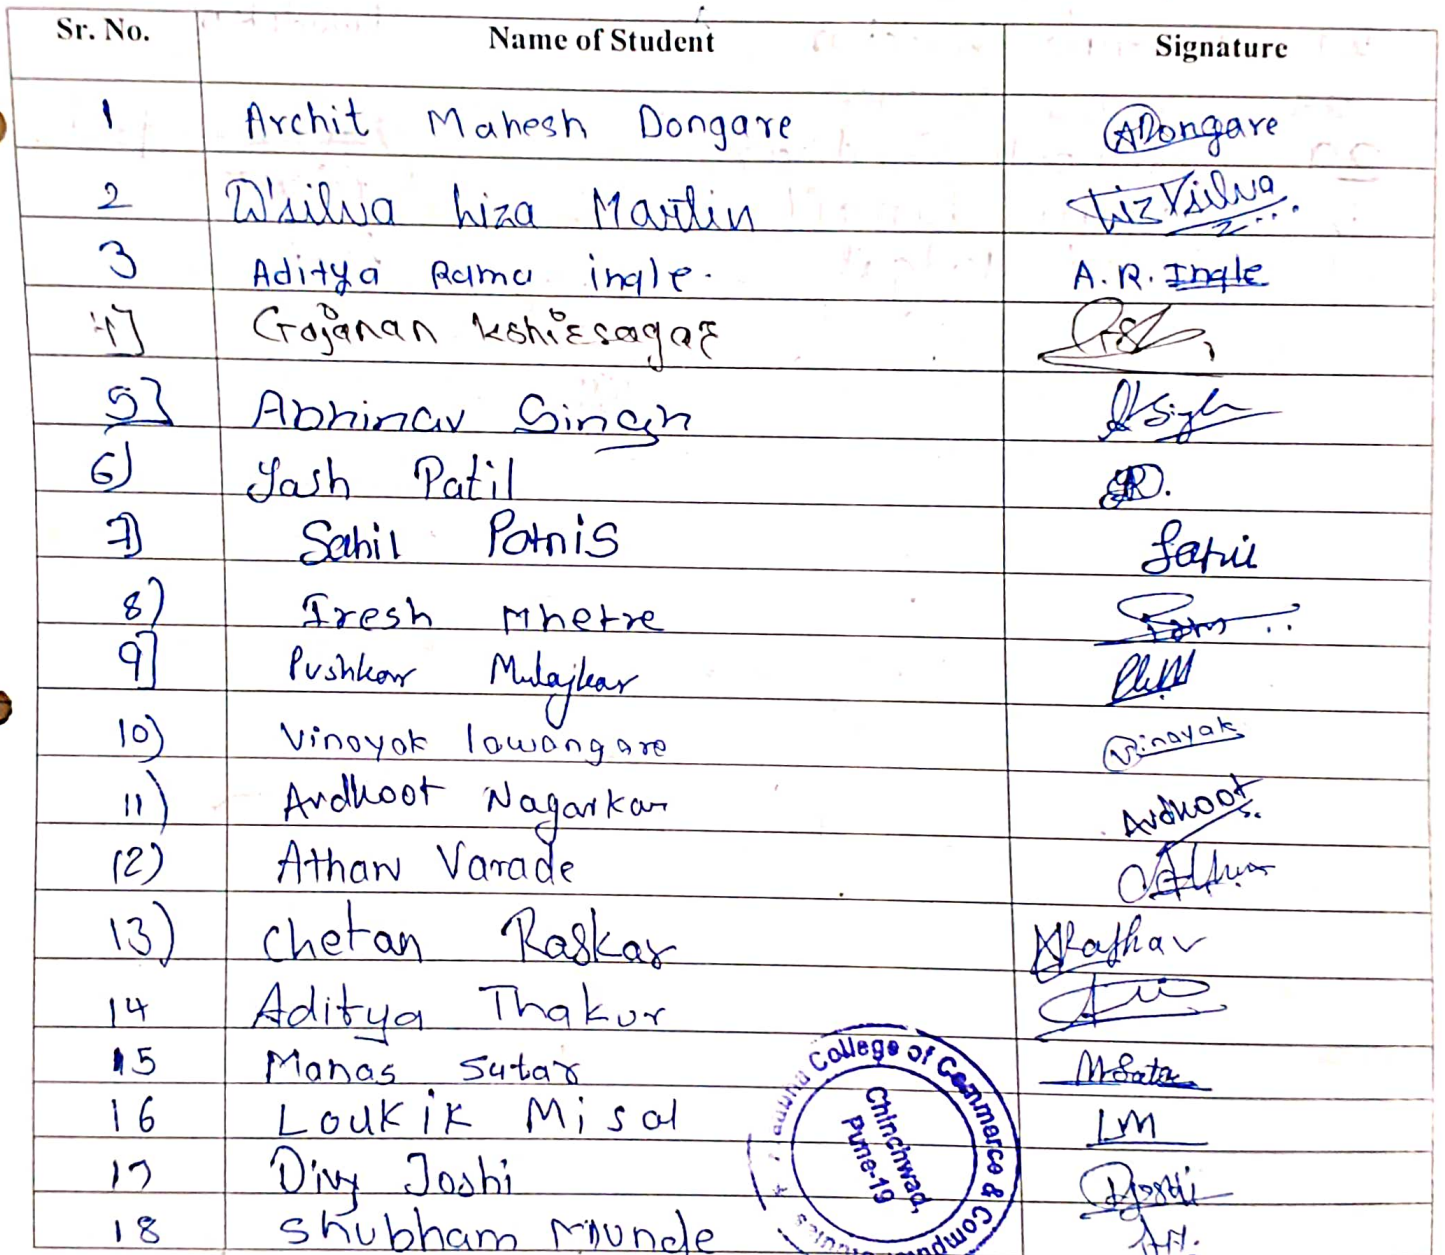 Sr. No. Name of Student Signature
1 Archit Mahesh Dongare ADongare
2 D'silva Liza Martin
3 Aditya Rama ingle. A. R. Ingle
4] Gajanan Kshirsagar
5] Abhinav Singh
6) Yash Patil
7) Sahil Patnis Sahil
8) Iresh Mhetre
9] Pushkar Mulajkar
10) Vinayak lawangare Vinayak
11) Avdhoot Nagarkar Avdhoot
12) Atharv Varade
13) Chetan Raskar
14 Aditya Thakur
15 Manas Sutar
16 Loukik Misal LM
17 Divy Joshi
18 Shubham Munde
College of Commerce &
Chinchwad,
Pune-19